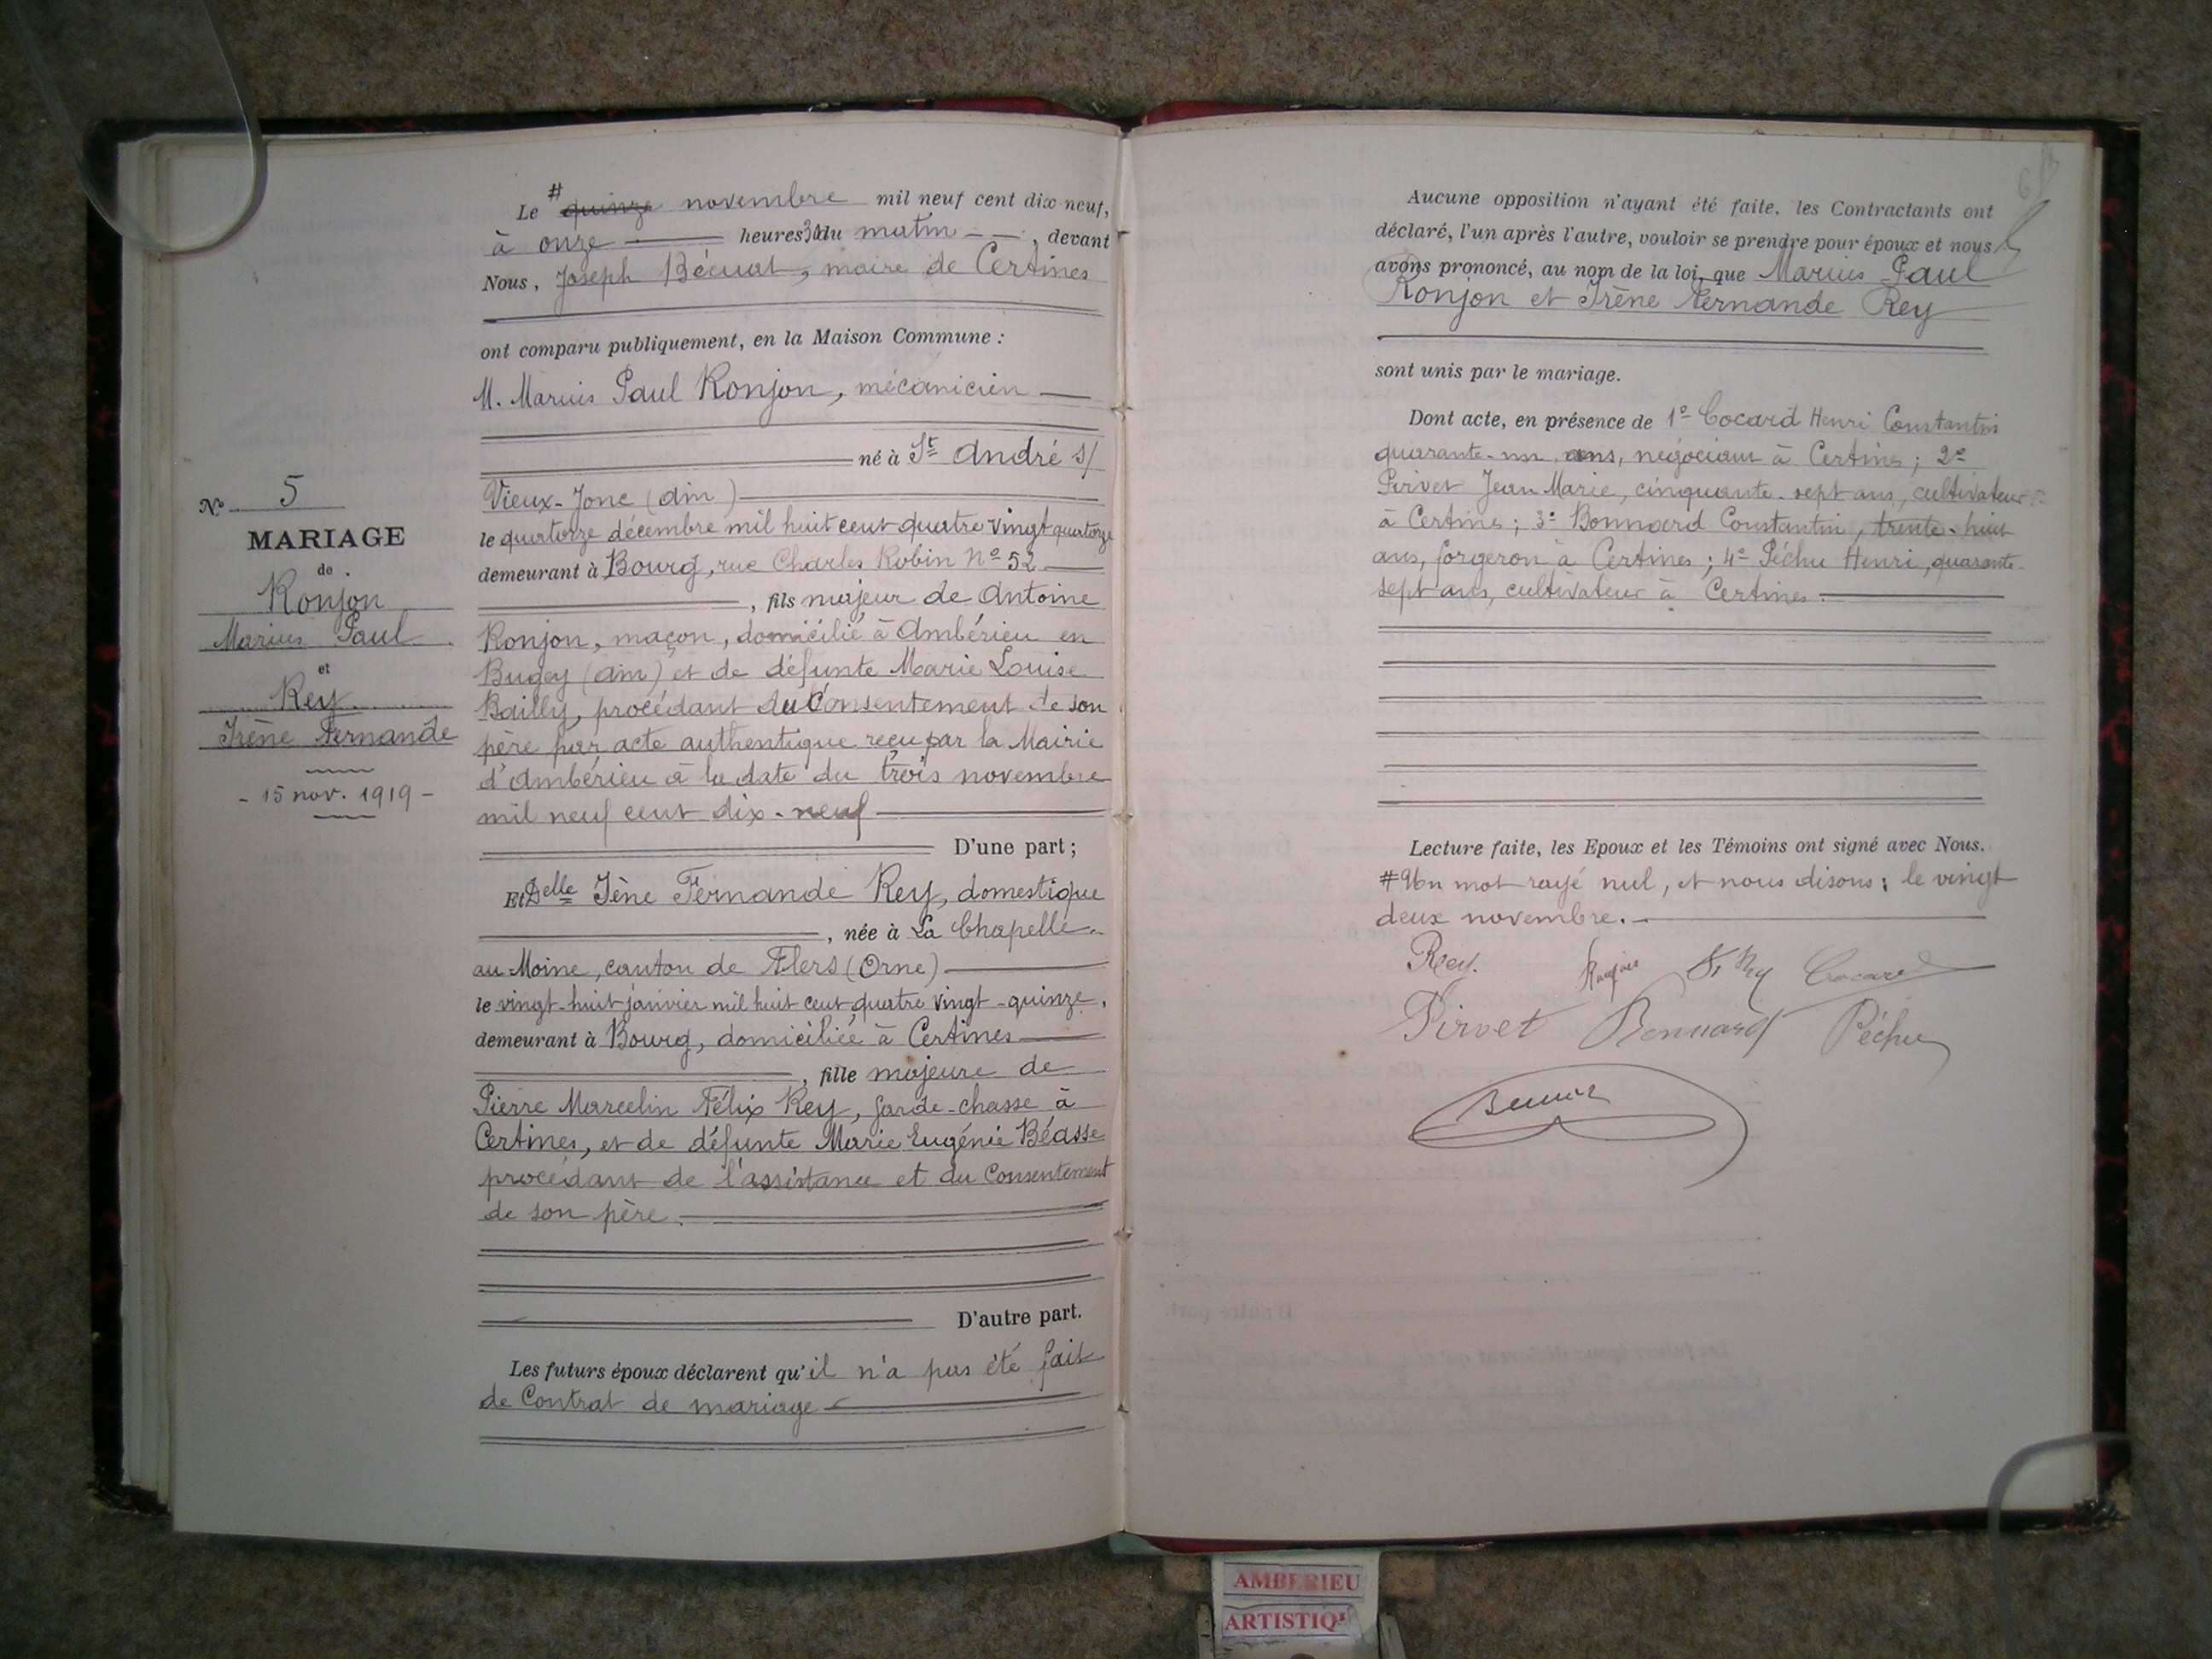 Le # quinze novembre mil neuf cent dix-neuf,
à onze heures 30 du matin, devant
Nous, Joseph Bécuat, maire de Certines
ont comparu publiquement, en la Maison Commune :
M. Marius Paul Ronjon, mécanicien
né à St André s/
Vieux-Jonc (Ain)
le quatorze décembre mil huit cent quatre vingt quatorze
demeurant à Bourg, rue Charles Robin No 52
, fils majeur de Antoine
Ronjon, maçon, domicilié à Ambérieu en
Bugey (Ain) et de défunte Marie Louise
Bailly, procédant du Consentement de son
père par acte authentique reçu par la Mairie
d'Ambérieu à la date du trois novembre
mil neuf cent dix-neuf
D'une part ;
Et Delle Iène Fernande Rey, domestique
, née à La Chapelle-
au-Moine, canton de Flers (Orne)
le vingt-huit janvier mil huit cent quatre vingt-quinze,
demeurant à Bourg, domiciliée à Certines
, fille majeure de
Pierre Marcelin Félix Rey, garde-chasse à
Certines, et de défunte Marie Eugénie Béasse
procédant de l'assistance et du Consentement
de son père.
D'autre part.
Les futurs époux déclarent qu'il n'a pas été fait
de Contrat de mariage
No 5
MARIAGE
de
Ronjon
Marius Paul
et
Rey
Irène Fernande
- 15 nov. 1919 -
Aucune opposition n'ayant été faite, les Contractants ont
déclaré, l'un après l'autre, vouloir se prendre pour époux et nous
avons prononcé, au nom de la loi, que Marius Paul
Ronjon et Irène Fernande Rey
sont unis par le mariage.
Dont acte, en présence de 1o Cocard Henri Constantin
quarante-un ans, négociant à Certines ; 2o
Pirvet Jean Marie, cinquante-sept ans, cultivateur
à Certines ; 3o Bonnard Constantin, trente-huit
ans, forgeron à Certines ; 4o Péchu Henri, quarante-
sept ans, cultivateur à Certines.
Lecture faite, les Epoux et les Témoins ont signé avec Nous.
# Un mot rayé nul, et nous disons : le vingt
deux novembre.
Rey. Ronjon Rey Cocard
Pirvet Bonnard Péchu
AMBERIEU
ARTISTIQ